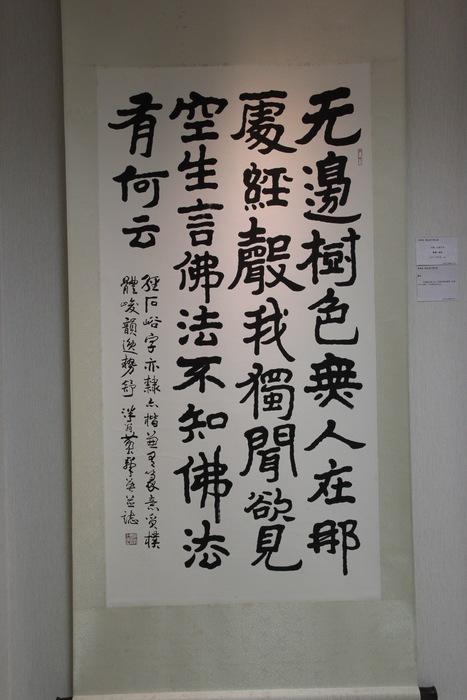 无邊樹色無人在那
處經聲我獨聞欲見
空生言佛法不知佛法
有何云
經石峪字亦隸亦楷兼有篆意質樸
體峻韻逸勢舒